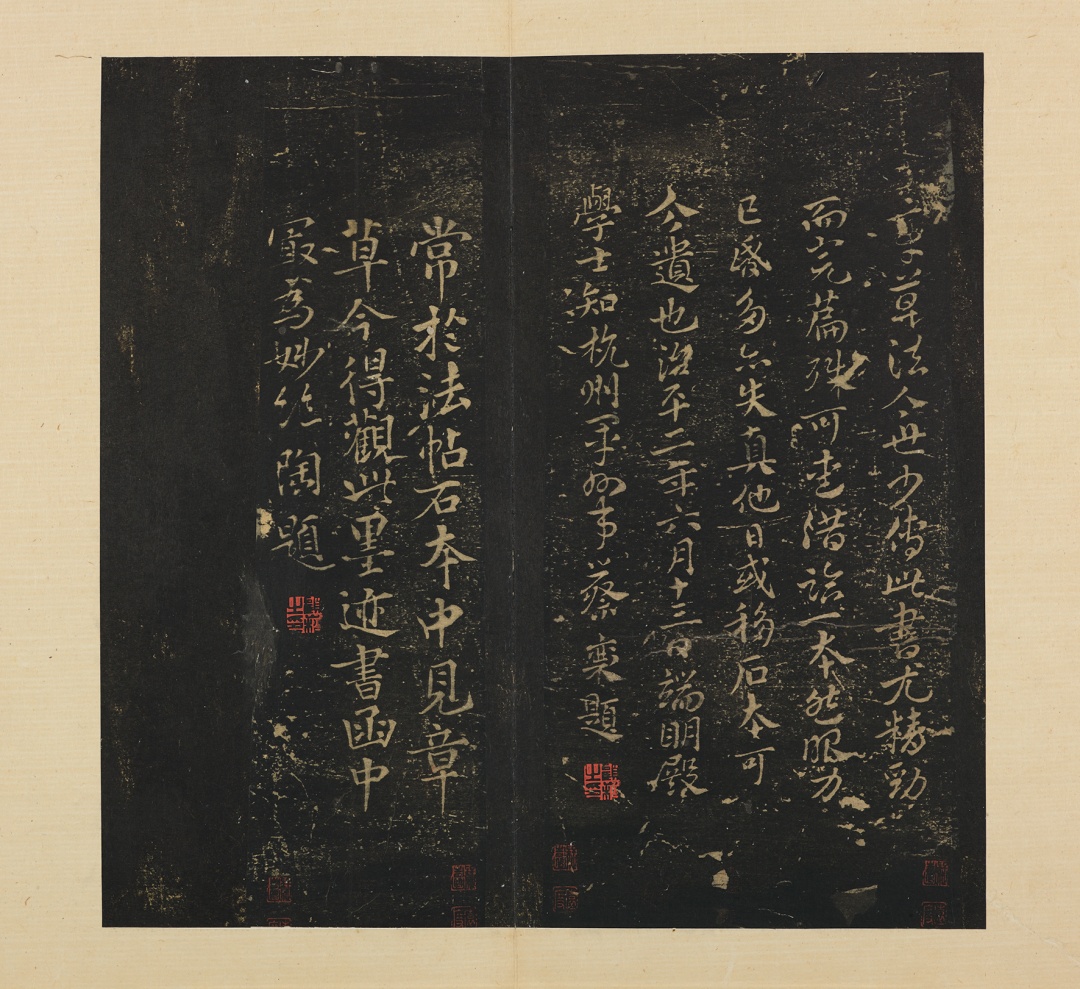 章草法人世少傳此書尤精勁
而完篇殊可
借詒一本然眼力
已昏多亦失真他日或移石本可
今遺也治平二年六月十三日端明殿
學士知杭州軍州事蔡襄題
常於法帖石本中見章
草今得觀此墨迹書函中
最為妙絕陶題